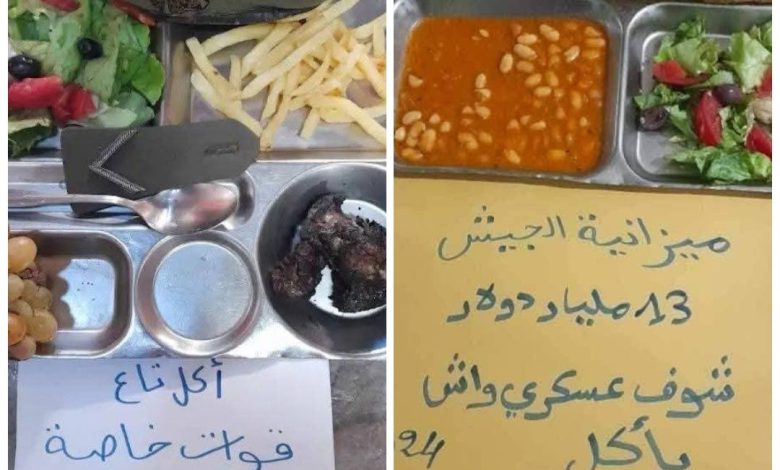 أكل تاع
قوات خاصة
ميزانية الجيش
13 مليار دولار
شوف عسكري واش
يأكل
24